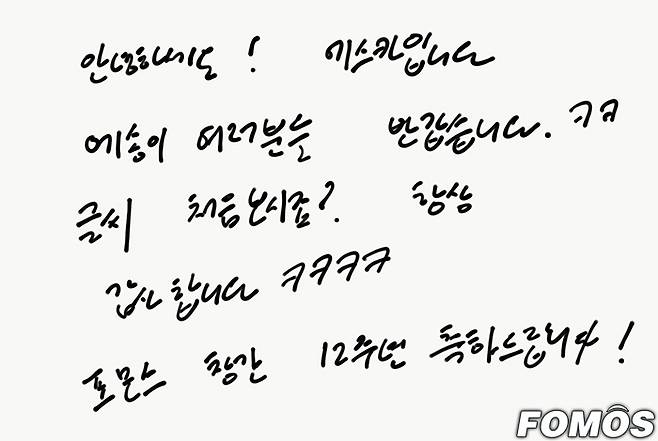 안녕하세요! 기스카입니다
에송이 여러분들 반갑습니다. ㅋㅋ
글씨 처음보시죠? 항상
감사합니다 ㅋㅋㅋㅋ
포모스 창간 12주년 축하드립니다!
FOMOS